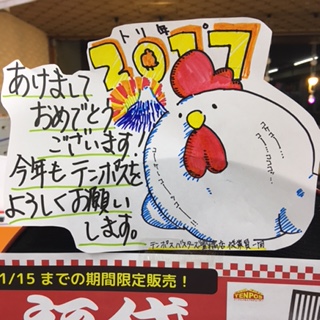 トリ年。
2017
あけまして
おめでとう
ございます!
今年もテンポスを
よろしくお願い
します。
テンポスバスターズ
従業員一同
1/15 までの期間限定販売！
TENPOS